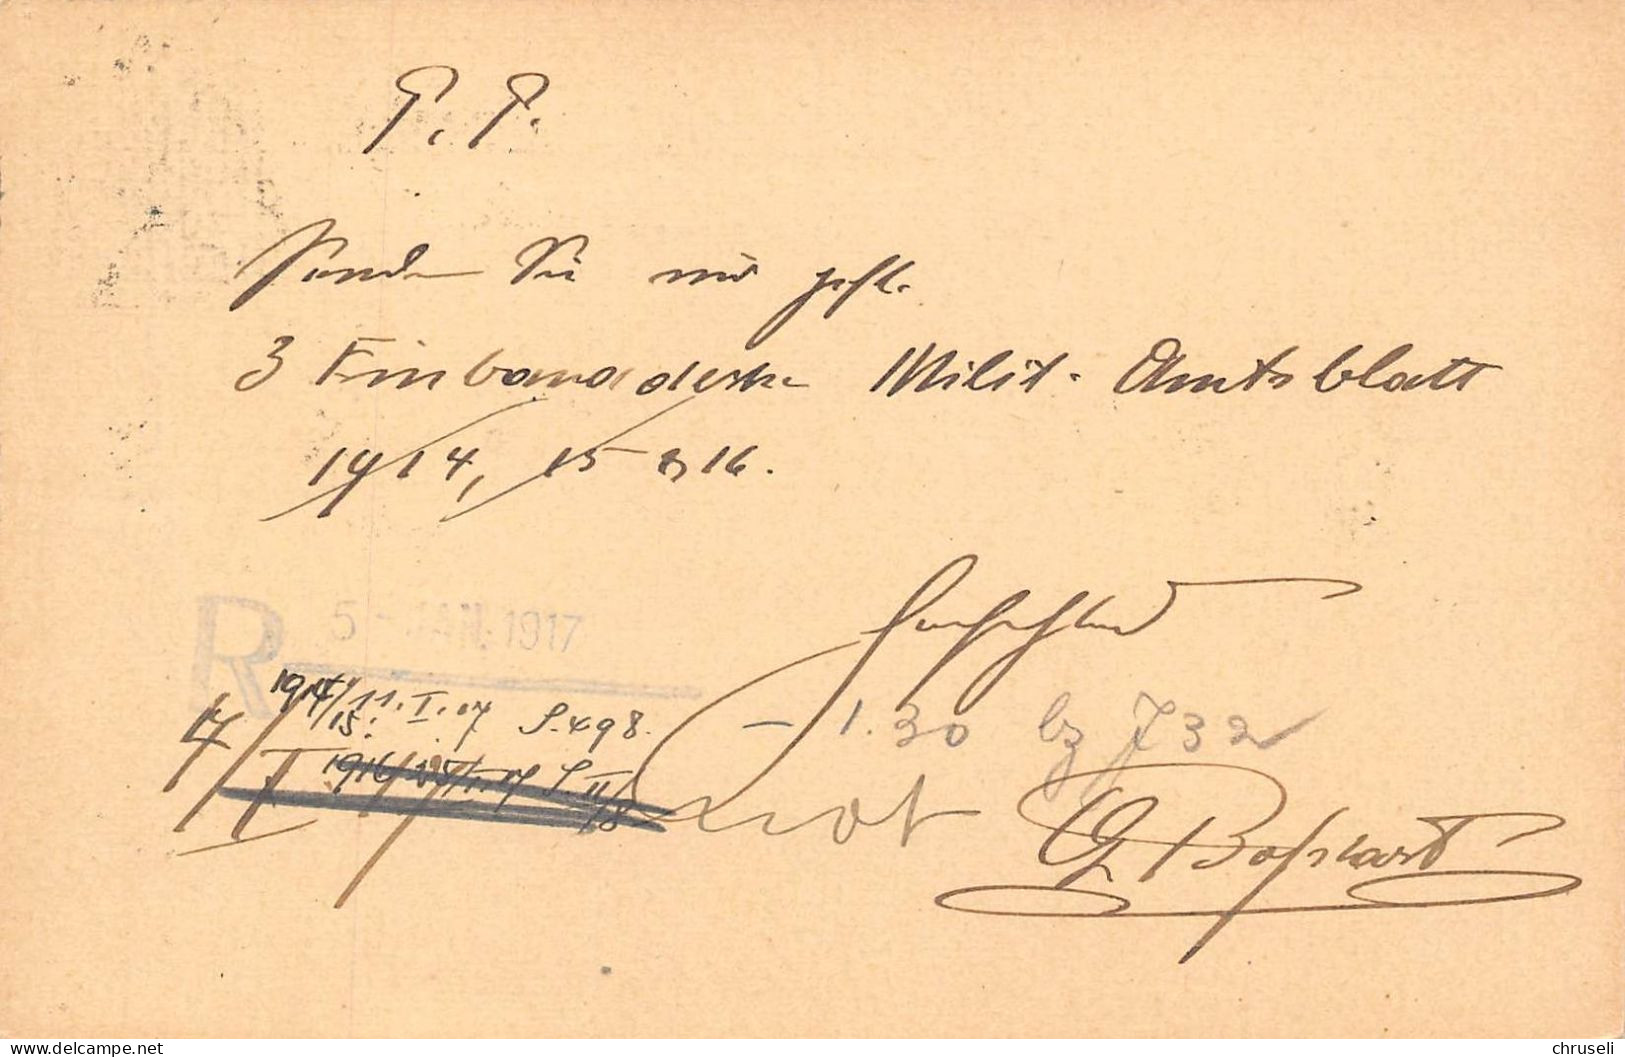 P. P.
Senden Sie mir gefl.
3 Einbanddecken Milit. Amtsblatt
1914, 15 & 16.
Hochachtend
R 5 - JAN. 1917
1914/15. 11. I. 17 S. 498.
1916/
- 1.30 bz J 32
G Boßhart
chruseli